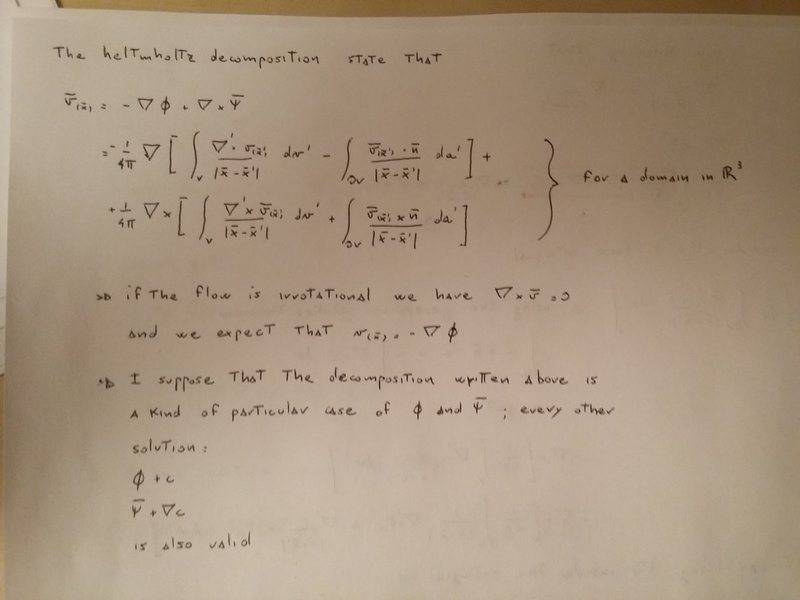 The heltmholtz decomposition state that
v̄(x̄) = - ∇ϕ + ∇ × Ψ̄
= - 1/4π ∇ [ ∫_V ∇'· v̄(x̄') / |x̄ - x̄'| dv' - ∫_∂V v̄(x̄') · n̄ / |x̄ - x̄'| da' ] +
+ 1/4π ∇ × [ ∫_V ∇' × v̄(x̄') / |x̄ - x̄'| dv' + ∫_∂V v̄(x̄') × n̄ / |x̄ - x̄'| da' ]
for a domain in ℝ³
if the flow is irrotational we have ∇ × v̄ = 0
and we expect that v(x̄) = - ∇ϕ
I suppose that the decomposition written above is
a kind of particular case of ϕ and Ψ̄ ; every other
solution:
ϕ + c
Ψ̄ + ∇c
is also valid